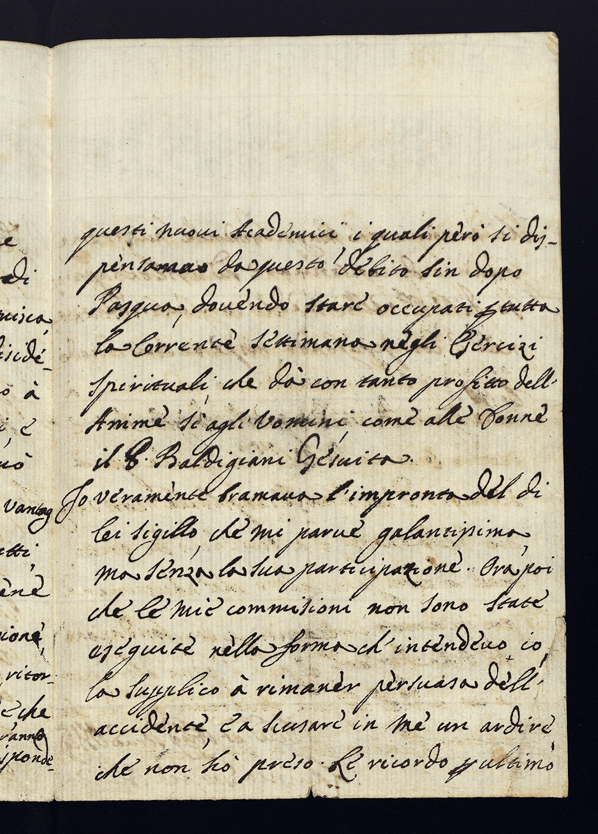 questi nuovi Academici i quali però si dis-
pensarano da questo debito sin dopo
Pasqua dovendo stare occupati p tutta
la Corrente settimana negli Esercizi
spirituali che dà con tanto profitto dell'
Anime sì agli Uomini come alle Donne
il P. Baldigiani Gesuita.
Io veramente bramava l'impronta del di
lei sigillo che mi parve galantissima
ma senza la sua participazione. Ora poi
che le mie commisioni non sono state
eseguite nella forma ch' intendevo io,
la supplico à rimaner persuasa dell'
accidente e a scusare in me un ardire
che non hò preso. Le ricordo p ultimo
e
di
à
i e
uò
Vantag
tti
ene
ione,
ritor-
e che
ranno
sponde-